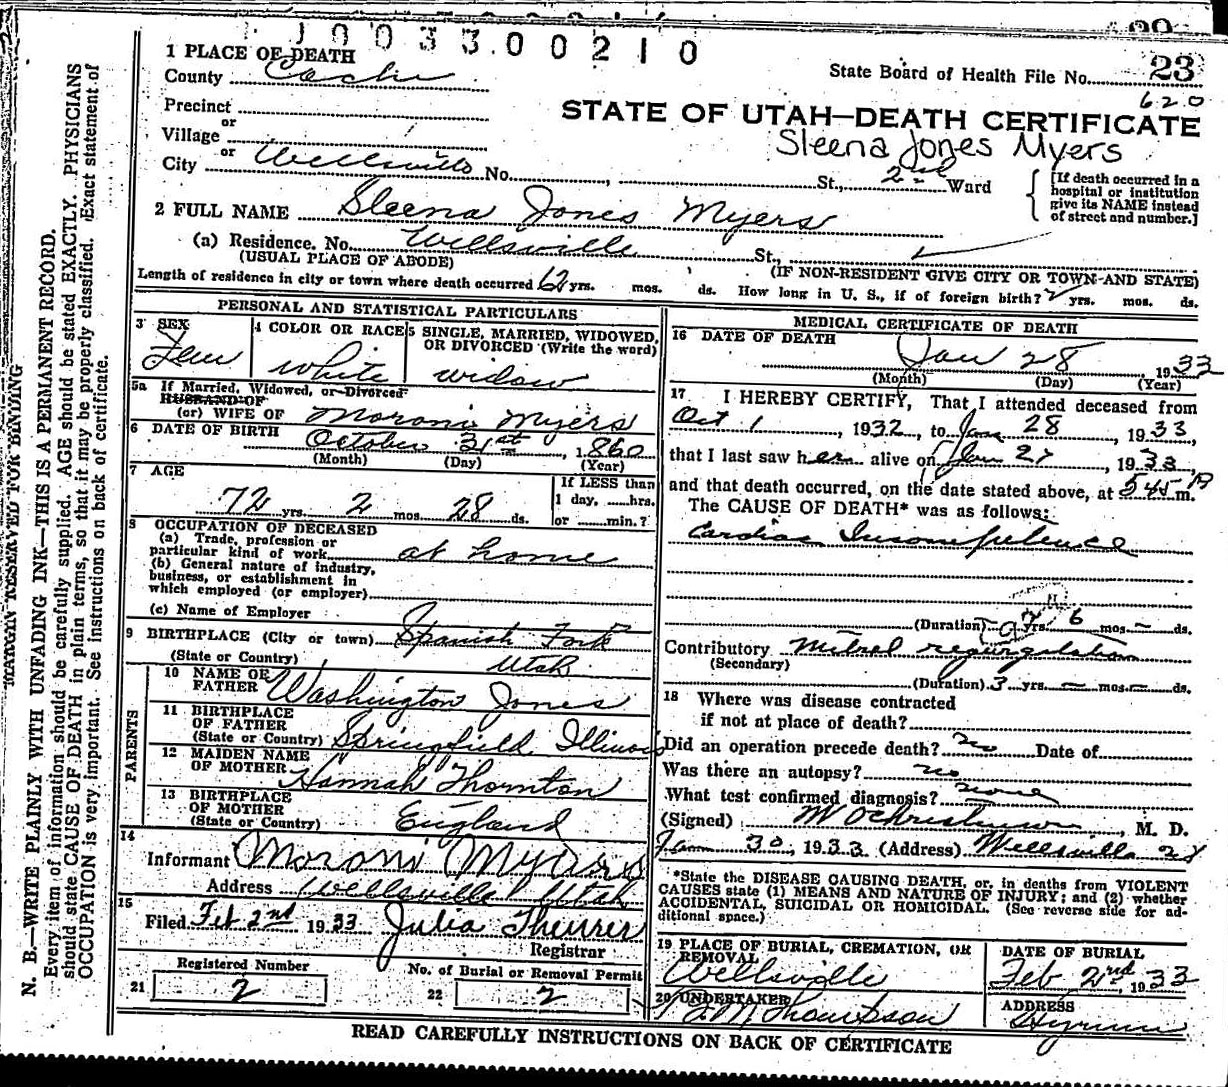 1 0 0 3 3 0 0 2 1 0
1 PLACE OF DEATH
County Cache
State Board of Health File No. 23
620
Precinct
or
Village
or
City Wellsville No. St., 2nd Ward
STATE OF UTAH—DEATH CERTIFICATE
Sleena Jones Myers
[If death occurred in a hospital or institution give its NAME instead of street and number.]
2 FULL NAME Sleena Jones Myers
(a) Residence. No. Wellsville St.,
(USUAL PLACE OF ABODE) (IF NON-RESIDENT GIVE CITY OR TOWN AND STATE)
Length of residence in city or town where death occurred 62 yrs. mos. ds. How long in U. S., if of foreign birth? yrs. mos. ds.
PERSONAL AND STATISTICAL PARTICULARS
3 SEX
Fem
4 COLOR OR RACE
white
5 SINGLE, MARRIED, WIDOWED, OR DIVORCED (Write the word)
widow
5a If Married, Widowed, or Divorced
HUSBAND OF
(or) WIFE OF Moroni Myers
6 DATE OF BIRTH October 31st, 1860
(Month) (Day) (Year)
7 AGE
72 yrs. 2 mos. 28 ds.
If LESS than
1 day, hrs.
or min.?
8 OCCUPATION OF DECEASED
(a) Trade, profession or
particular kind of work at home
(b) General nature of industry,
business, or establishment in
which employed (or employer)
(c) Name of Employer
9 BIRTHPLACE (City or town) Spanish Fork
(State or Country) Utah
PARENTS
10 NAME OF
FATHER Washington Jones
11 BIRTHPLACE
OF FATHER
(State or Country) Springfield Illinois
12 MAIDEN NAME
OF MOTHER Hannah Thornton
13 BIRTHPLACE
OF MOTHER
(State or Country) England
14
Informant Moroni Myers
Address Wellsville Utah
15
Filed Feb 2nd 1933 Julia Theurer
Registrar
Registered Number
21 2
No. of Burial or Removal Permit
22 2
MEDICAL CERTIFICATE OF DEATH
16 DATE OF DEATH
Jan 28, 1933
(Month) (Day) (Year)
17 I HEREBY CERTIFY, That I attended deceased from
Oct 1, 1932, to Jan 28, 1933,
that I last saw her alive on Jan 27, 1933,
and that death occurred, on the date stated above, at 545 P m.
The CAUSE OF DEATH* was as follows:
Cardiac Incompetence
(Duration) yrs. 6 mos. – ds.
Contributory Mitral regurgitation
(Secondary)
(Duration) 3 yrs. – mos. – ds.
18 Where was disease contracted
if not at place of death?
Did an operation precede death? no Date of
Was there an autopsy? no
What test confirmed diagnosis? none
(Signed) , M. D.
Jan 30, 1933 (Address) Wellsville
*State the DISEASE CAUSING DEATH, or, in deaths from VIOLENT
CAUSES state (1) MEANS AND NATURE OF INJURY; and (2) whether
ACCIDENTAL, SUICIDAL OR HOMICIDAL. (See reverse side for ad-
ditional space.)
19 PLACE OF BURIAL, CREMATION, OR
REMOVAL
Wellsville
DATE OF BURIAL
Feb 2nd, 1933
20 UNDERTAKER
Thompson
ADDRESS
Hyrum
READ CAREFULLY INSTRUCTIONS ON BACK OF CERTIFICATE
MARGIN RESERVED FOR BINDING
N. B.—WRITE PLAINLY WITH UNFADING INK—THIS IS A PERMANENT RECORD.
Every item of information should be carefully supplied. AGE should be stated EXACTLY. PHYSICIANS
should state CAUSE OF DEATH in plain terms, so that it may be properly classified. Exact statement of
OCCUPATION is very important. See instructions on back of certificate.